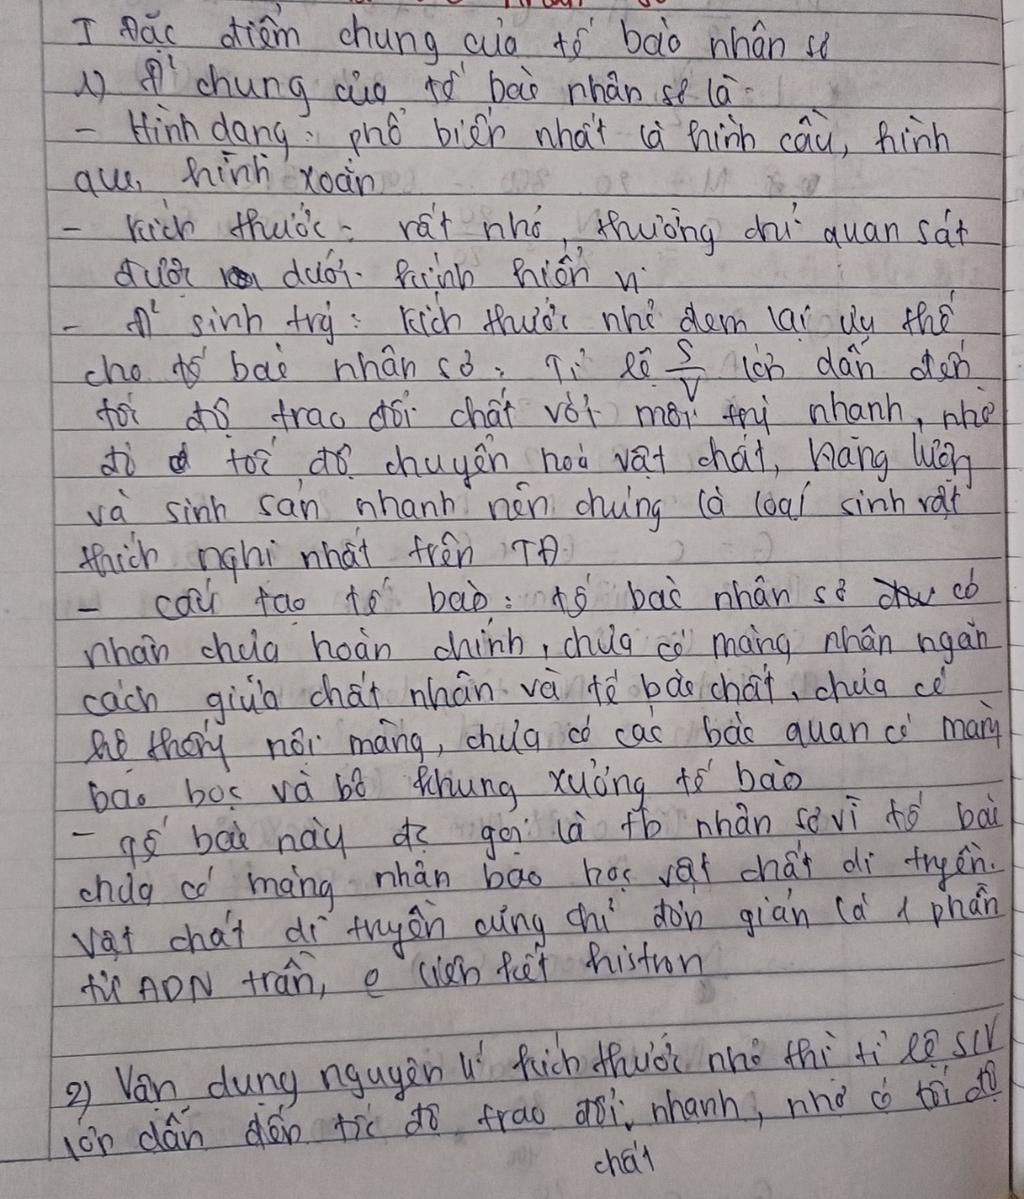 I Đặc điểm chung của tế bào nhân sơ
1) Đ² chung của tế bào nhân sơ là:
- Hình dạng: phổ biến nhất là hình cầu, hình
que, hình xoắn
- Kích thước: rất nhỏ, thường chỉ quan sát
được dưới kính hiển vi
- Đ² sinh trg: Kích thước nhỏ đem lại ưu thế
cho tế bào nhân sơ: Tỉ lệ S/V lớn dẫn đến
tốc độ trao đổi chất với môi trg nhanh, nhờ
đó tốc độ chuyển hoá vật chất, năng lượng
và sinh sản nhanh nên chúng là loại sinh vật
thích nghi nhất trên TĐ
- cấu tạo tế bào: tế bào nhân sơ có
nhân chưa hoàn chỉnh, chưa có màng nhân ngăn
cách giữa chất nhân và tế bào chất, chưa có
hệ thống nội màng, chưa có các bào quan có màng
bao bọc và bộ khung xương tế bào
- Tế bào này đc gọi là tb nhân sơ vì tế bào
chưa có màng nhân bao bọc vật chất di truyền.
Vật chất di truyền cũng chỉ đơn giản là 1 phân
tử ADN trần, liên kết histron
2) Vận dụng nguyên lí kích thước nhỏ thì tỉ lệ S/V
lớn dẫn đến tốc độ trao đổi nhanh, nhờ có tốc độ
chất